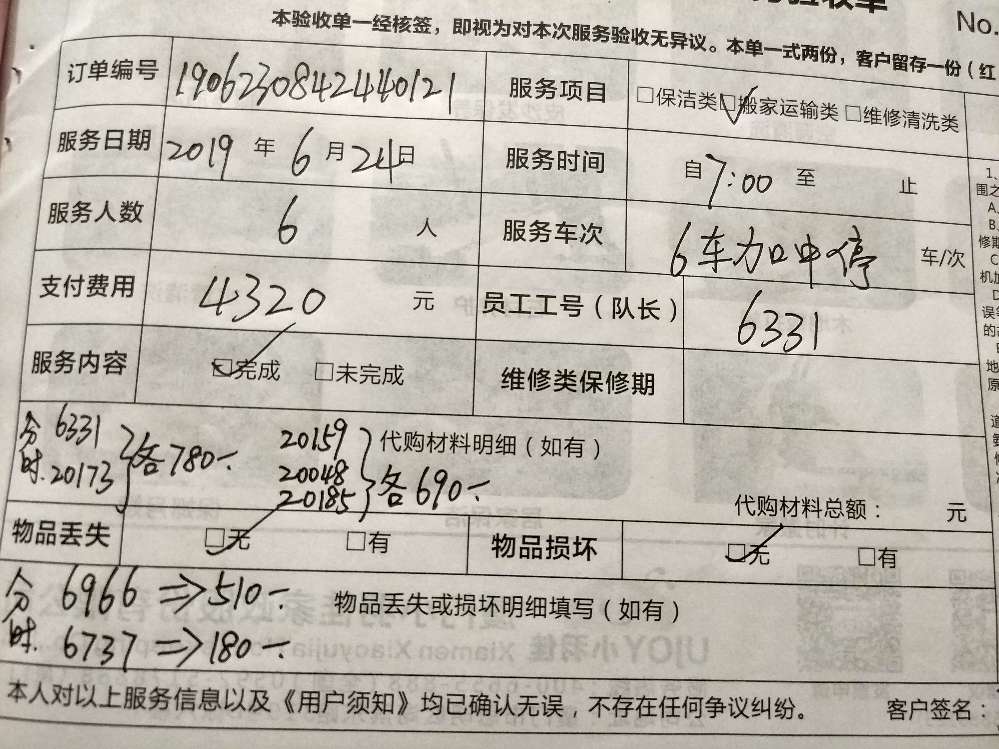 No.
本验收单一经核签，即视为对本次服务验收无异议。本单一式两份，客户留存一份（红
订单编号 190623084244440121 服务项目 □保洁类 ☑搬家运输类 □维修清洗类
服务日期 2019 年 6 月 24 日 服务时间 自 7:00 至 止
服务人数 6 人 服务车次 6车加中停 车/次
支付费用 4320 元 员工工号（队长） 6331
服务内容 ☑完成 □未完成 维修类保修期
分时. 6331 20173 } 各780- 20159 20048 20185 } 各690- 代购材料明细（如有）
代购材料总额： 元
物品丢失 ☑无 □有 物品损坏 ☑无 □有
分 6966 ⇒ 510- 物品丢失或损坏明细填写（如有）
时. 6737 ⇒ 180-
本人对以上服务信息以及《用户须知》均已确认无误，不存在任何争议纠纷。 客户签名：